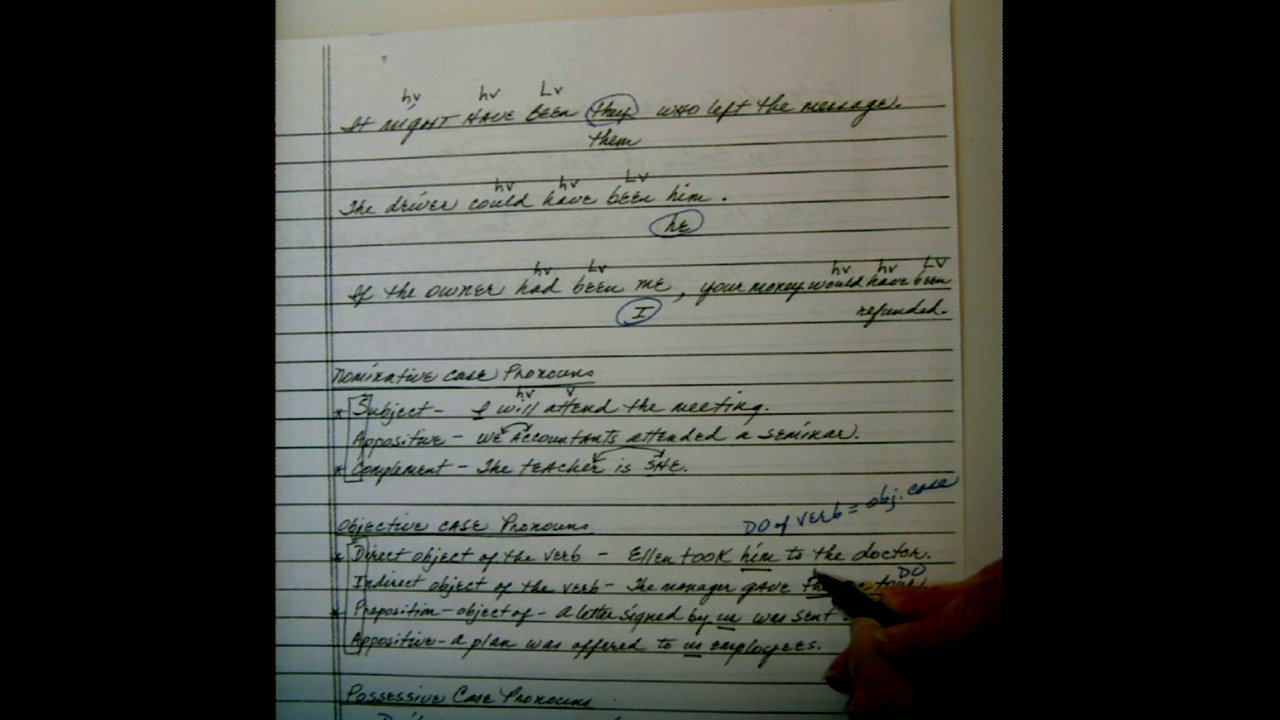 hv hv Lv
It might HAVE BEEN they who left the message.
them
hv hv Lv
The driver could have been him.
he
hv Lv hv hv Lv
If the owner had been me, your money would have been
I refunded.
Nominative Case Pronouns
hv v
* Subject - I will attend the meeting.
Appositive - We Accountants attended a seminar.
* Complement - The teacher is SHE.
DO of verb = obj. case
Objective Case Pronouns
* Direct object of the verb - Ellen took him to the doctor.
DO
Indirect object of the verb - The manager gave
* Preposition - object of - A letter signed by us was sent
Appositive - A plan was offered to us employees.
Possessive Case Pronouns